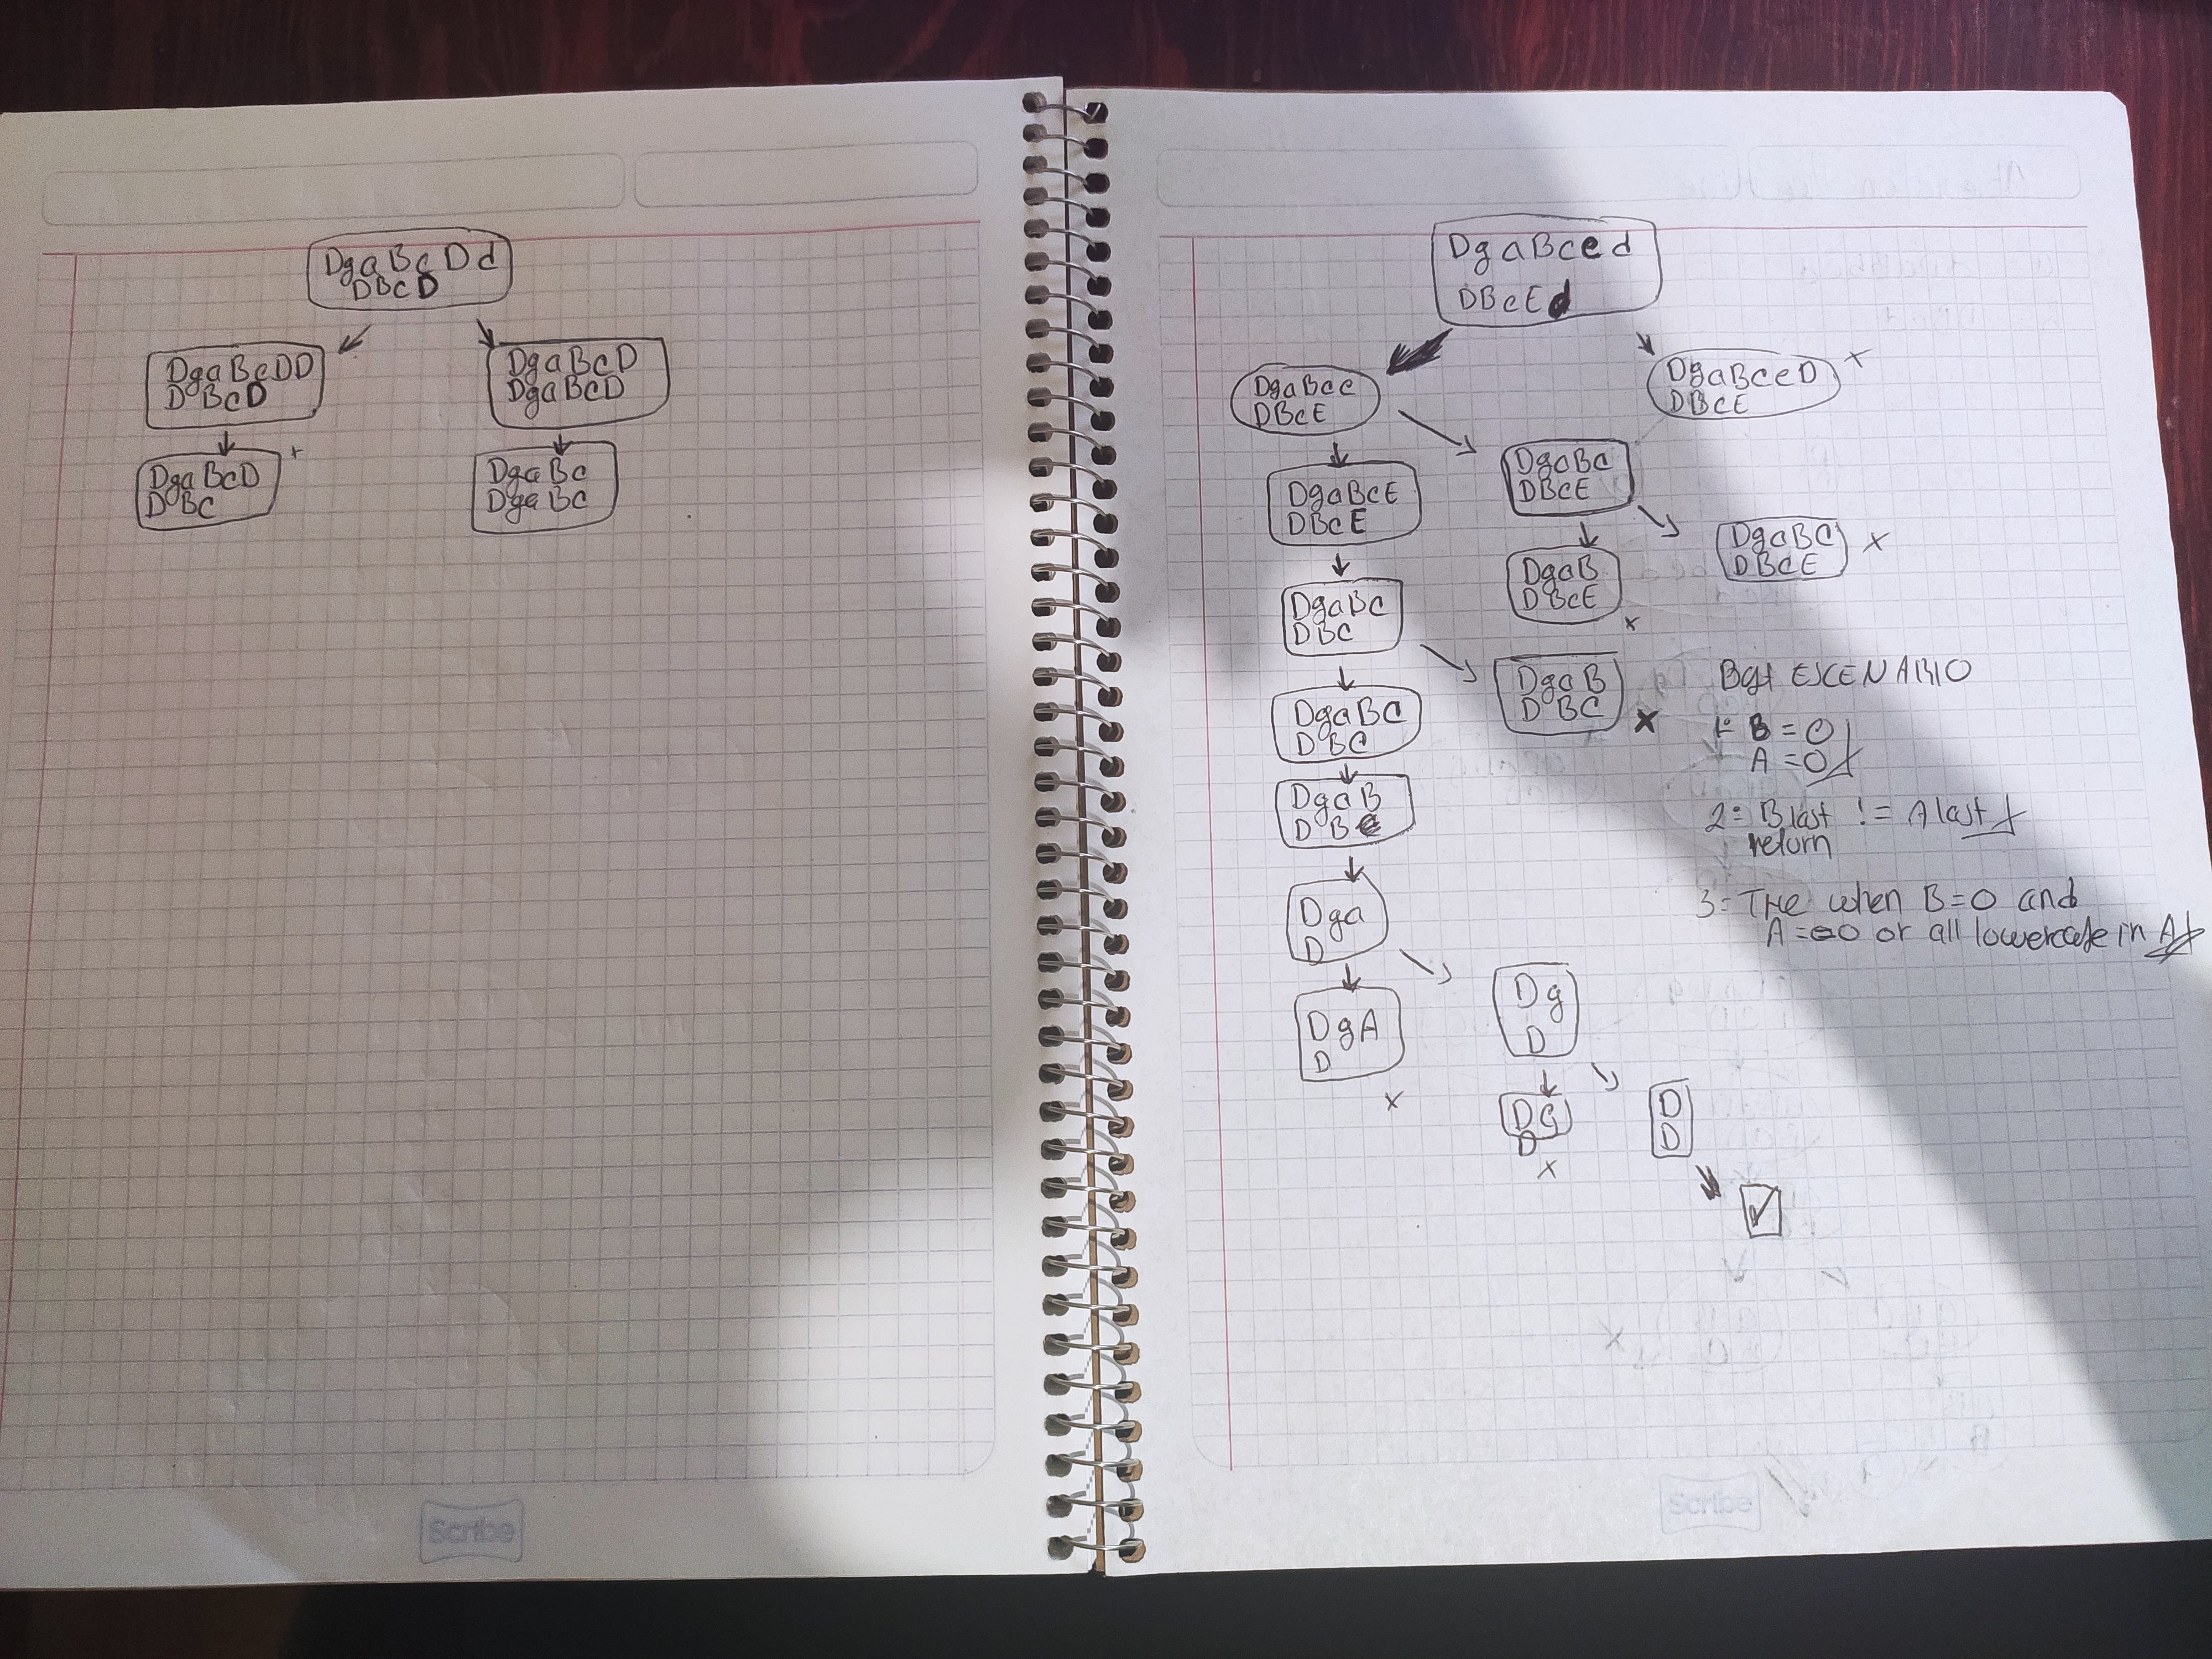 DgaBcDd
DBcD
DgaBcDD
DBcD
DgaBcD
DgaBcD
DgaBcD
DBC
DgaBc
DgaBc
Scribe
DgaBced
DBcEd
DgaBce
DBcE
DgaBceD
DBcE
DgaBcE
DBcE
DgaBC
DBcE
DgaBC
DBcE
DgaBc
DBC
DgaB
DBcE
DgaBC
DBC
DgaB
DBC
DgaB
DB
Dga
D
Dg
D
DgA
D
DG
D
D
D
BASE ESCENARIO
1: B = 0
A = 0
2: B last != A last
return
3: True when B=0 and
A=0 or all lowercase in A
Scribe